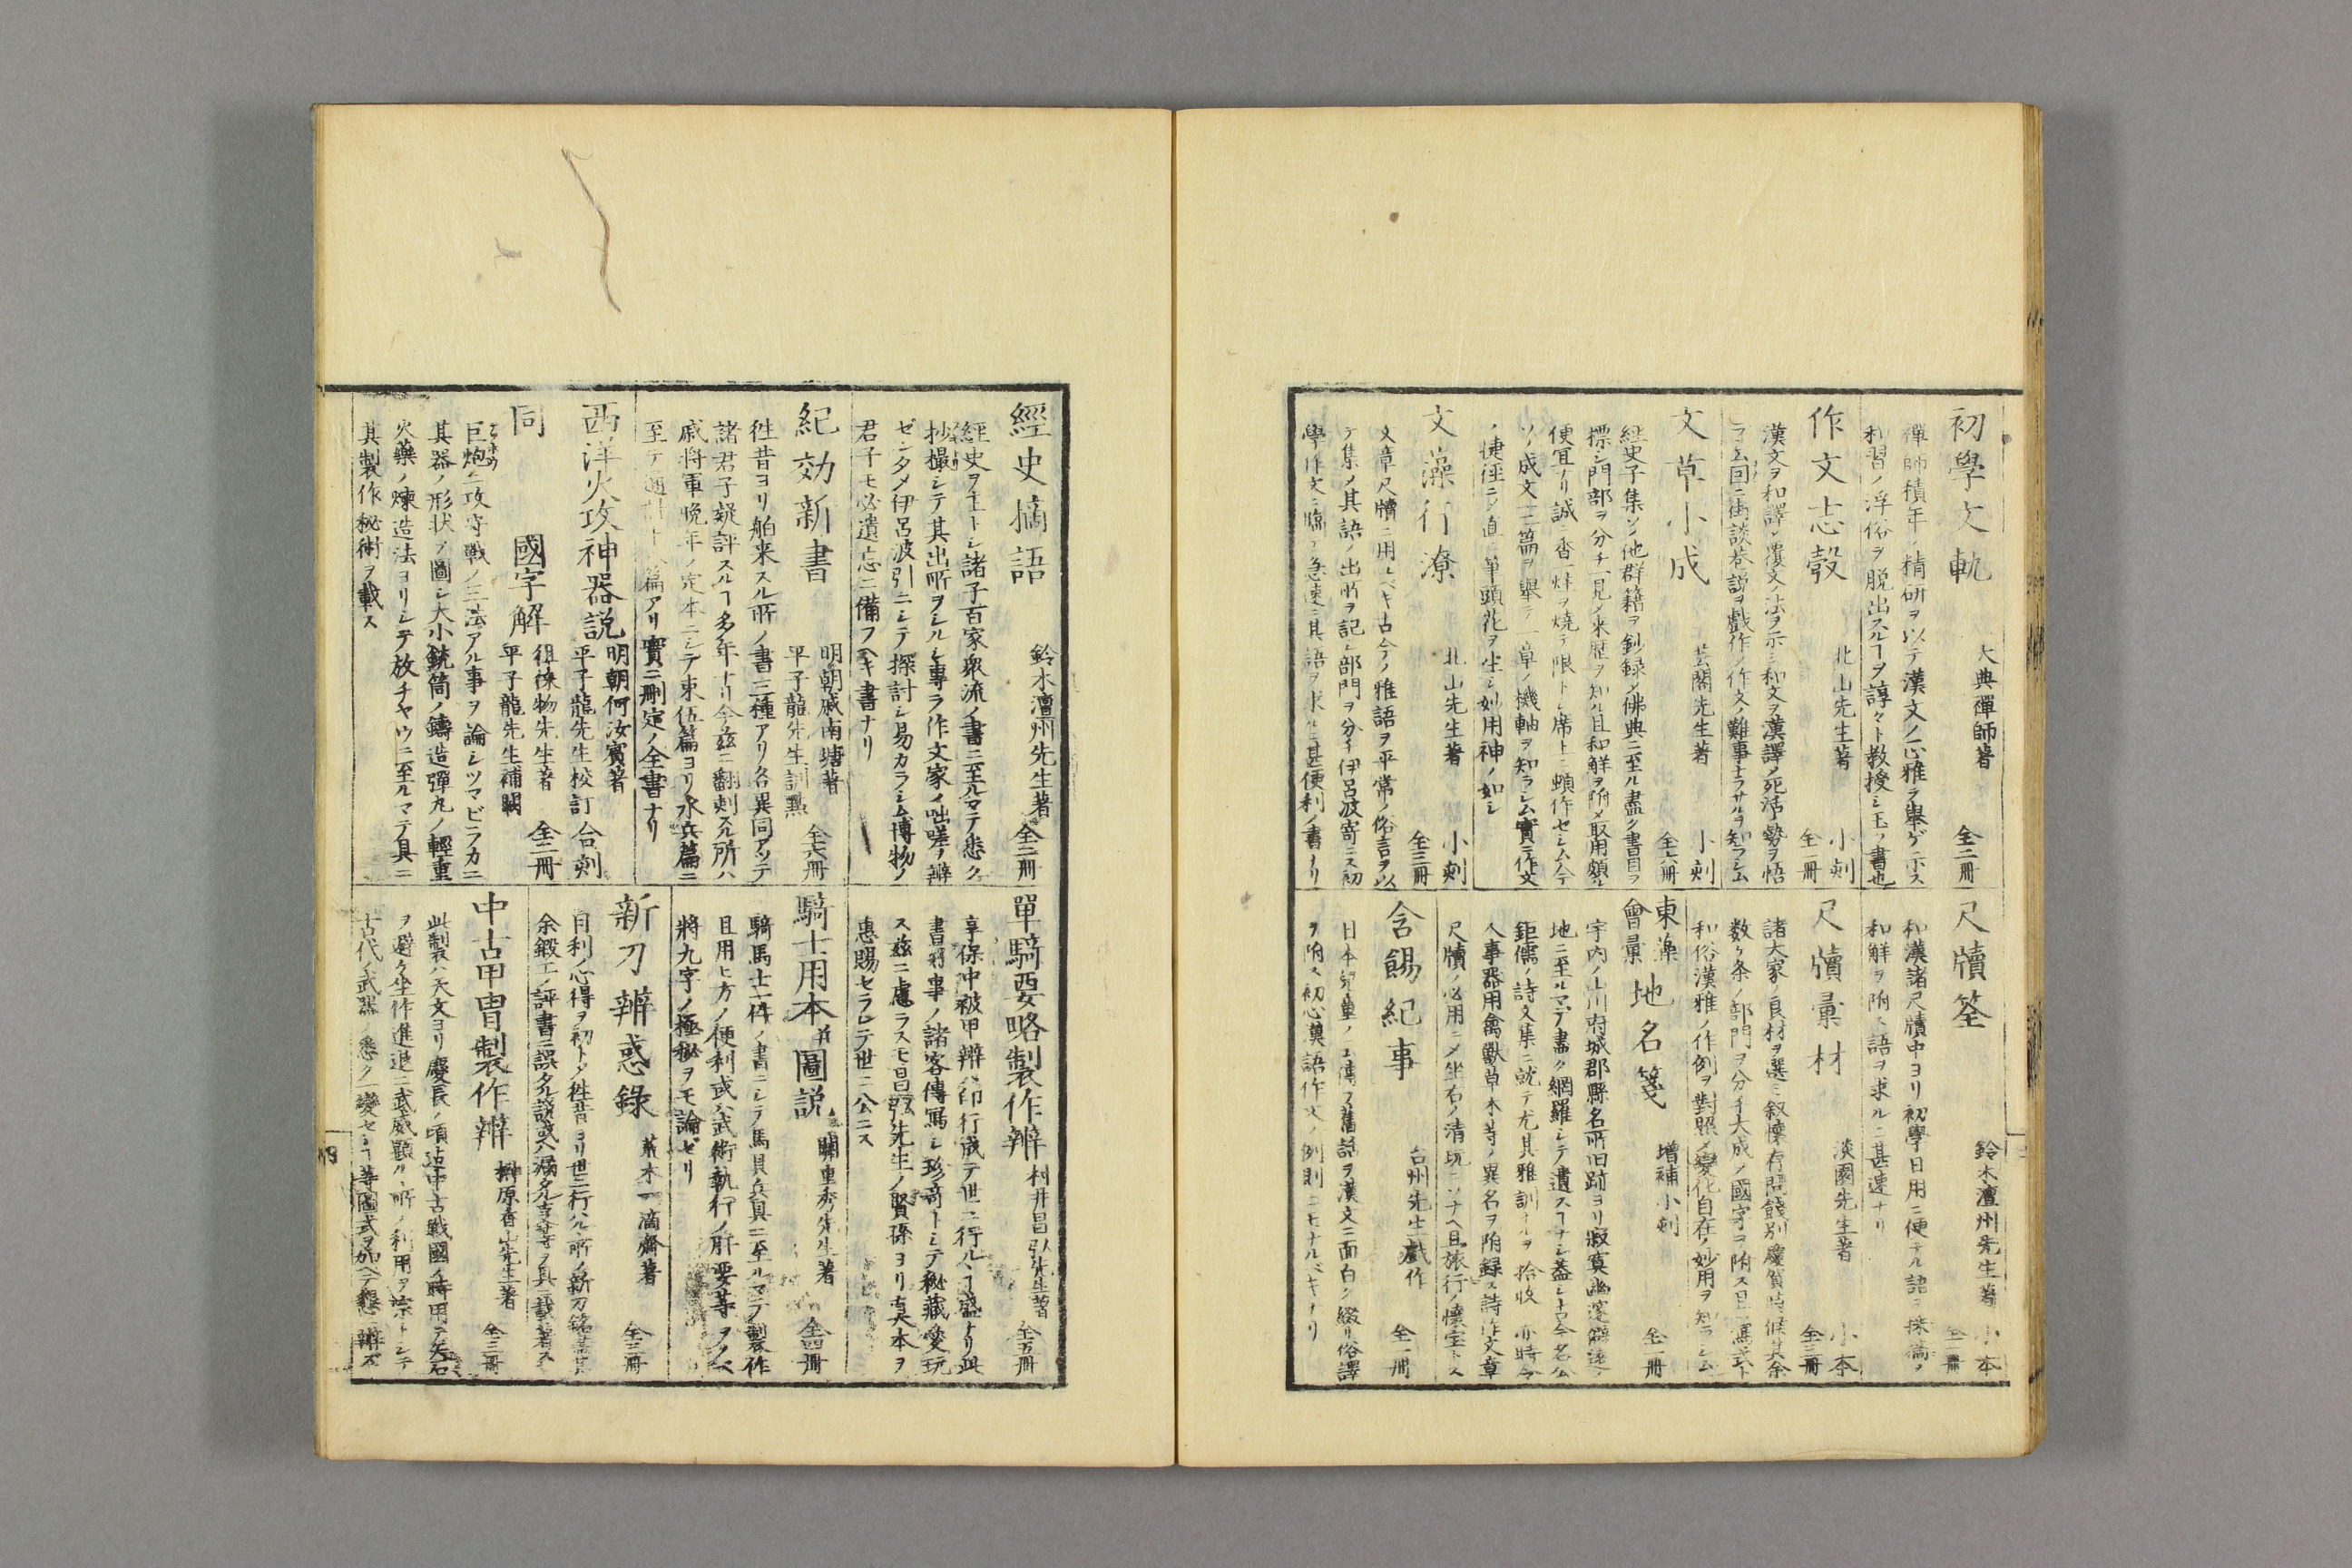 初學文軌
大典禪師著
全二冊
禪師積年ノ精研ヲ以テ漢文ノ正雅ヲ舉ゲ示ス
和習ノ浮俗ヲ脱出スルヿヲ諄々ト教授シ玉フ書也
作文志彀
北山先生著
小刻
全一冊
漢文ヲ和譯シ覆文ノ法ヲ示シ和文ヲ漢譯ノ死活ノ勢ヲ悟
ラシム回ニ街談巷説ヲ戯作ノ作文ノ難事ナラサルヲ知ラシム
文草小成
芸閣先生著
小刻
全六冊
經史子集ソノ他群籍ヲ鈔録メ佛典ニ至ル盡ク書目ヲ
標シ門部ヲ分チ一見メ来歴ヲ知ル且和解ヲ附メ取用頗ル
便宜ナリ誠ニ香一炷ヲ燒テ限トシ席上ニ頓作セシム今
ソノ成文三篇ヲ舉テ一章ノ機軸ヲ知ラシム實ニ作文
ノ捷徑ニメ直ニ筆頭花ヲ生シ妙用神ノ如シ
文藻行潦
北山先生著
小刻
全三冊
文章尺牘ニ用ユベキ古今ノ雅語ヲ平常ノ俗言ヲ以
テ集メ其語ノ出所ヲ記シ部門ヲ分チ伊呂波寄ニス初
學ノ作文ニ臨テ急速ニ其語ヲ求ルニ甚便利ノ書ナリ
尺牘筌
鈴木澶州先生著
小本
全一冊
和漢諸尺牘中ヨリ初學日用ニ便ナル語ヲ採摘メ
和解ヲ附ス語ヲ求ルニ甚速ナリ
尺牘彙材
淡園先生著
小本
全三冊
諸大家ノ良材ヲ選ミ叙懷存問餞別慶賀時候其余
数々条ノ部門ヲ分チ大成ノ國字ヲ附ス且
和俗漢雅ノ作例ヲ對照メ變化自在ノ妙用ヲ知ラシム
東藻會彙地名箋
增補小刻
全一冊
宇内ノ山川府城郡縣名所旧跡ヨリ寂寞幽邃
地ニ至ルマデ書ク網羅シテ遺スヿナシ蓋シ古今名公
鉅儒ノ詩文集ニ就テ尤其雅訓ナルヲ拾收
人事器用禽獸草木等ノ異名ヲ附録ス詩作文章
尺牘ノ必用ニメ坐右ノ清玩ニソナヘ且旅行ノ懷宝トス
含餳紀事
台州先生戯作
全一冊
日本兒童ノ云傳フ舊話ヲ漢文ニ面白ク綴リ俗譯
ヲ附ス初心漢語作文ノ例則ニモナルベキナリ
經史摘語
鈴木澶州先生著
全二冊
經史ヲ主トシ諸子百家衆流ノ書ニ至ルマテ悉ク
抄撮シテ其出所ヲシルシ專ラ作文家ノ咄嗟ノ辨
ゼンタメ伊呂波引ニシテ探討シ易カラシム博物ノ
君子モ必遺忘ニ備フヘキ書ナリ
紀効新書
明朝戚南塘著
平子龍先生訓點
全六冊
徃昔ヨリ舶来スル所ノ書三種アリ各異同アツテ
諸君子疑評スルヿ多年ナリ今茲ニ翻刻スル所ハ
戚將軍晩年ノ定本ニシテ束伍篇ヨリ水兵篇ニ
至テ通計十八篇アリ實ニ刪定ノ全書ナリ
西洋火攻神器説
明朝何汝賓著
平子龍先生校訂
合刻
同
國字解
徂徠物先生著
平子龍先生補闕
全二冊
巨炮ニ攻守戰ノ三法アル事ヲ論シツマビラカニ
其器ノ形状ヲ圖シ大小銃筒ノ鑄造彈丸ノ輕重
火藥ノ煉造法ヨリシテ放チヤウニ至ルマテ具ニ
其製作秘術ヲ載ス
單騎要略製作辨
村井昌弘先生著
全五冊
享保中被甲辨ハ印行成テ世ニ行ルヽヿ盛ナリ此
書好事ノ諸客傳寫シ珍奇トシテ秘藏愛玩
ス茲ニ慮ラスモ昌弘先生ノ賢孫ヨリ真本ヲ
惠賜セラレテ世ニ公ニス
騎士用本并圖説
關重秀先生著
全四冊
騎馬士一件ノ書ニシテ馬具兵具ニ至ルマテノ製作
且用ヒ方ノ便利或ハ武術執行ノ肝要等ヲノベ
將九字ノ極秘ヲモ論ゼリ
新刀辨惑錄
荒木一滴齋著
全三冊
目利ノ心得ヲ初トメ徃昔ヨリ世ニ行ハルヽ所ノ新刀銘盡其
余鍛工ノ評書ニ誤タル説或ハ漏タル等ヲ具ニ載著ス
中古甲冑製作辨
榊原香山先生著
全三冊
此製ハ天文ヨリ慶長ノ頃迄中古戰國ノ時用テ矢石
ヲ避ケ坐作進退ニ武威顯ルヽ所ノ利用ヲ宗トシテ
古代ノ武器ノ悉ク一變セシヿ等圖式ヲ加ヘテ懇ニ辨ズ
四